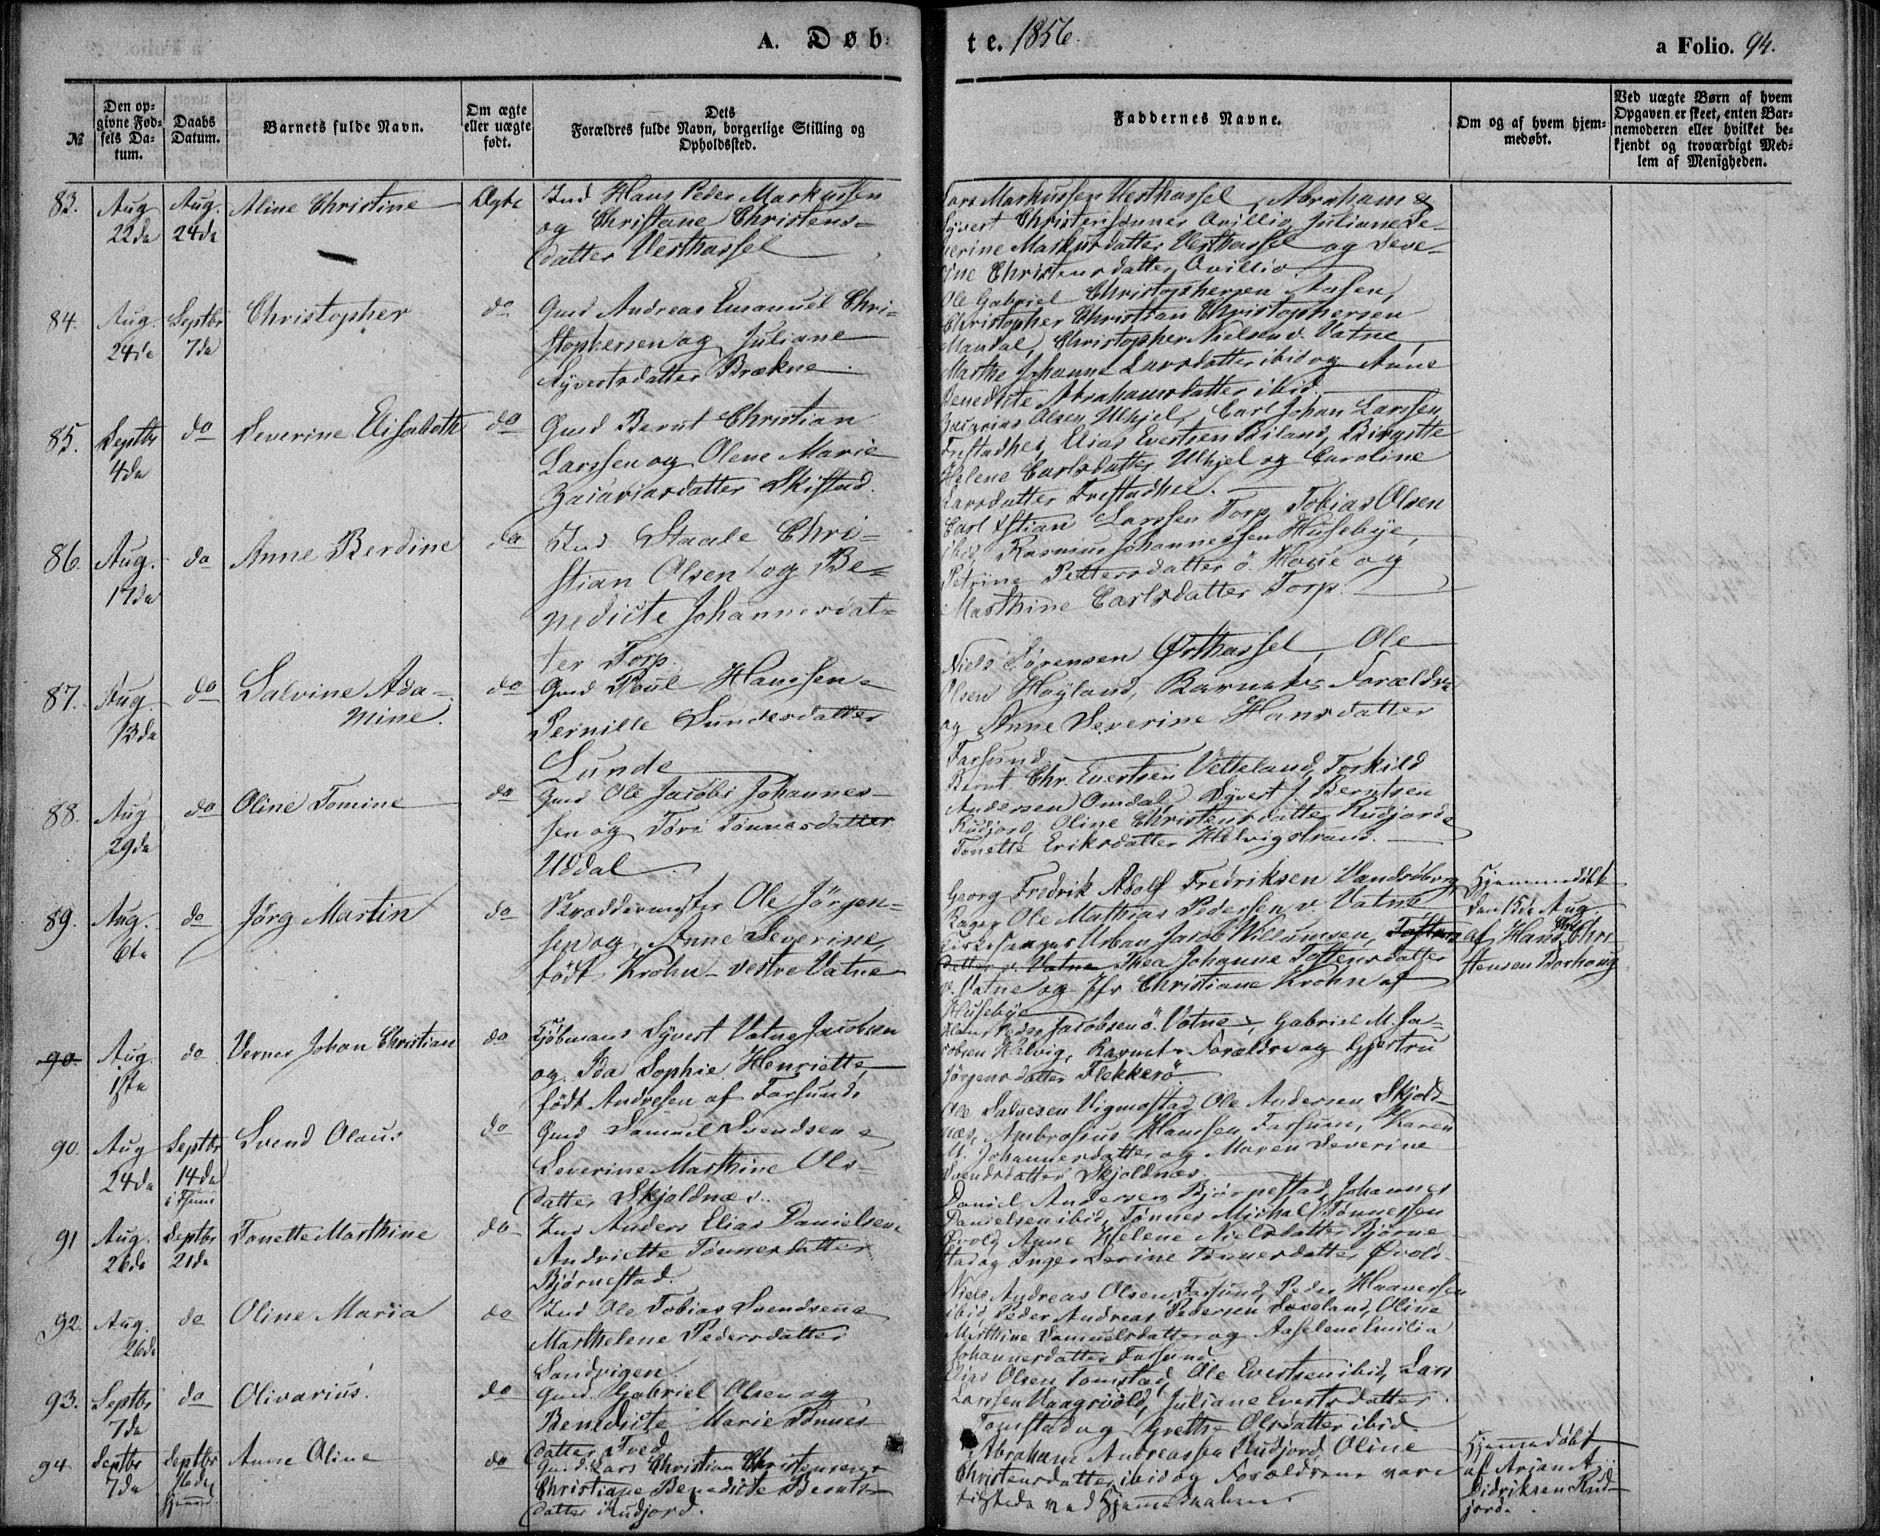 A. Døb-
te. 1856.
a Folio. 94.
№
Den op-
givne Fød-
sels Da-
tum.
Daabs
Datum.
Barnets fulde Navn.
Om ægte
eller uægte
født.
Dets
Forældres fulde Navn, borgerlige Stilling og
Opholdssted.
Faddernes Navne.
Om og af hvem hjem-
medøbt.
Ved uægte Børn af hvem
Opgaven er skeet, enten Bar-
nemoderen eller hvilket be-
kjendt og troværdigt Med-
lem af Menigheden.
83.
Aug
22de
Aug.
24de
Aline Christine
Ægte
Ind Hans Peder Markussen
og Christiane Christens-
datter Vesthassel
Lars Markussen Vesthassel, Abraham &
Syvert Christensønner Qvillio, Juliane Se-
verine Markusdatter Vesthassel og Seve-
rine Christensdatter Qvillio
84.
Aug.
24de
Septbr
7de
Christopher
do
Gmd Andreas Emanuel Chri-
stophersen og Juliane
Syvertsdatter Brækne.
Ole Gabriel Christophersen Aasen,
Christopher Christian Christophersen
Mandal, Christopher Nielsen v. Vatne,
Marthe Johanne Larsdatter ibid og Anne
Benedicte Abrahamsdatter ibid.
85.
Septbr
4de
do
Severine Elisabeth
do
Gmd Bernt Christian
Larssen og Olene Marie
Zacariasdatter Skistad.
Zacarias Olsen Ulhjel, Carl Johan Larssen
Frestadhei, Elias Evertsen Biland, Birgitte
Helene Carlsdatter Ulhjel og Caroline
Larsdatter Frestadhei.
86.
Aug.
17de
do
Anne Berdine
do
Ind Staale Chri-
stian Olsen og Be-
nedicte Johannesdat-
ter Torp.
Carl Xstian Larssen Torp, Tobias Olsen
ibid, Rasmus Johannessen Husebye,
Petrine Pettersdatter ø. Houe og
Marthine Carlsdatter Torp.
87.
Aug.
13de
do
Salvine Ada-
mine.
do
Gmd Poul Hanssen &
Pernille Sundesdatter
Lunde
Niels Sørensen Østhassel, Ole
Olsen Høyland, Barnets Forældre
og Anne Severine Hansdatter
Farsund
88.
Aug
29de
do
Oline Tomine
do
Gmd Ole Jacobs Johannes-
sen og Tøri Tønnesdatter
Uddal.
Bernt Chr. Evertsen Vetteland, Torkild
Andersen Omdal, Syvert J. Berntsen
Rudjord, Oline Christensdatter Rudjord &
Tonette Eriksdatter Helvigstrand.
89.
Aug.
6te
do
Jørg Martin
do
Skræddermester Ole Jørgen-
sen og Anne Severine
født Krohn - vestre Vatne
Georg Fredrik Adolf Fredriksen Vandsborg,
Bager Ole Mathias Pedersen v. Vatne
Kirkesanger Urban Jacob Willumsen, Tostens
datter v. Vatne Thea Johanne Tostensdatter
v. Vatne og Jfr Christiane Krohn af
Husebye
Hjemmedøbt
den 15de Aug.
af Hans Chr. Chri-
stensen Borhaug
90.
Aug
1ste
do
Verner Johan Christian
do
Kjøbmand Syvert Vatne Jacobsen
og Ida Sophie Henriette,
født Andresen af Farsund.
Hans Peder Jacobsen ø. Vatne, Gabriel M. Ja-
cobsen Helvig, Barnets Forældre og Gjertru
Jørgensdatter Flekkerø
90.
Aug
24de
Septbr
14de
i Fsund
Svend Olaus
do
Gmd Samuel Svendsen &
Severine Marthine Ols-
datter Skjoldnæs.
Ole Salvesen Vigmostad, Ole Andersen Skjold-
næs, Ambrosius Hanssen, Farsund, Karen
M. Johannesdatter og Maren Severine
Svendsdatter Skjoldnæs.
91
Aug.
26de
Septbr
21de
Tonette Marthine
do
Ind Anders Elias Danielsen &
Andriette Tønnesdatter
Bjørnestad.
Daniel Andersen Bjørnestad, Johannes
Danielsen ibid, Tønnes Michal Tønnessen
Øvold, Anne Helene Nielsdatter Bjørne-
stad og Inger Serine Tønnesdatter Øvold.
92.
Aug.
26de
do
Oline Maria
do
Ind Ole Tobias Svendsen &
Marthelene Pedersdatter
Sandvigen
Niels Andreas Olsen Farsund, Peder Haaverssen
ibid, Peder Andreas Pedersen Loveland, Oline
Marthine Samuelsdatter og Aaselene Emilia
Johannesdatter Farsund.
93.
Septbr
7de
do
Olivarius.
do
Gmd Gabriel Olsen og
Benedicte Marie Tønnes-
datter Tved
Elias Olsen Tomstad, Ole Evertsen ibid, Lars
Larssen Haagsvold, Juliane Evertsdatter
Tomstad og Grethe Olsdatter ibid.
94.
Septbr
7de
Septbr
16de
hjemed.
Anne Oline
do
Gmd. Lars Christian Christensen &
Christiane Benedicte Bernts-
datter Rudjord.
Abraham Andreassen Rudjord, Oline
Christensdatter ibid og Forældrene vare
tilstede ved Hjemmedaaben.
Hjemmedøbt
af Arian A.
Didriksen Rud-
jord.